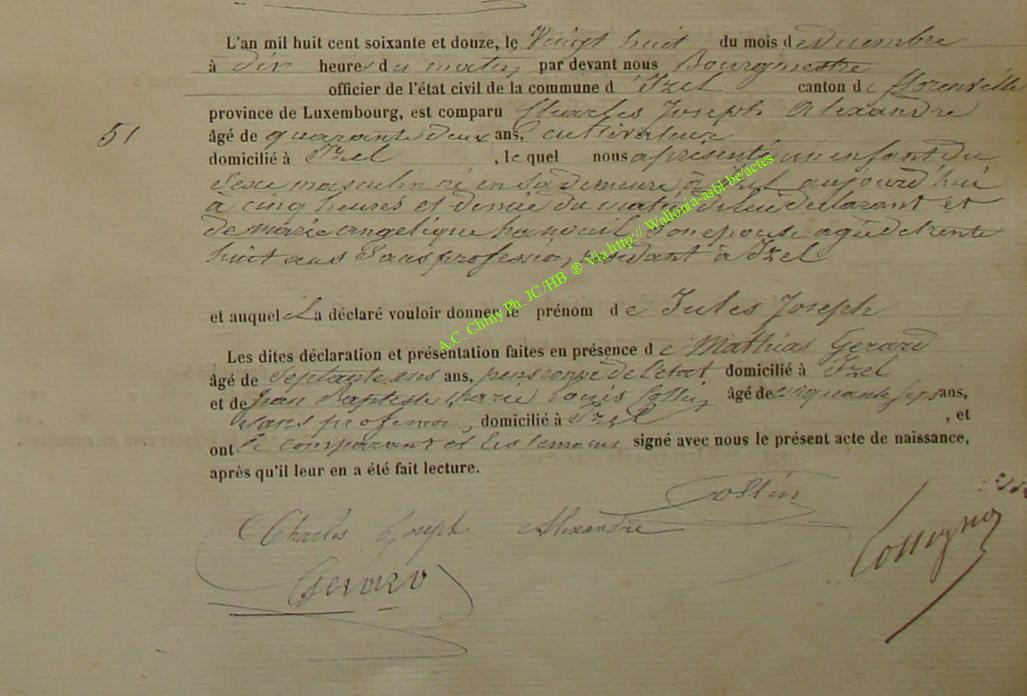 L'an mil huit cent soixante et douze, le Vingt huit du mois de Decembre
à dix heures du matin, par devant nous Bourgmestre
officier de l'état civil de la commune d'Izel canton de florenville
province de Luxembourg, est comparu Charles Joseph Alexandre
51
âgé de quarante deux ans, cultivateur
domicilié à Izel , le quel nous a présenté un enfant du
Sexe masculin né en sa demeure à Izel aujourd'hui
a cinq heures et demie du matin de lui declarant et
de marie angélique son epouse agée de trente
huit ans Sans profession, résidant à Izel
et auquel il a déclaré vouloir donner le prénom de Jules Joseph
Les dites déclaration et présentation faites en présence de Mathias Gerard
âgé de Septante ans ans, pensionné de l'etat domicilié à Izel
et de Jean Baptiste Marie Louis Collin âgé de cinquante sept ans,
Sans profession, domicilié à Izel , et
ont le comparant et les temoins signé avec nous le présent acte de naissance,
après qu'il leur en a été fait lecture.
Collin
Charles Joseph Alexandre
Gerard
A.C. Chiny Ph. JC/HB ® Via http:// Wallonia-asbl-be/actes